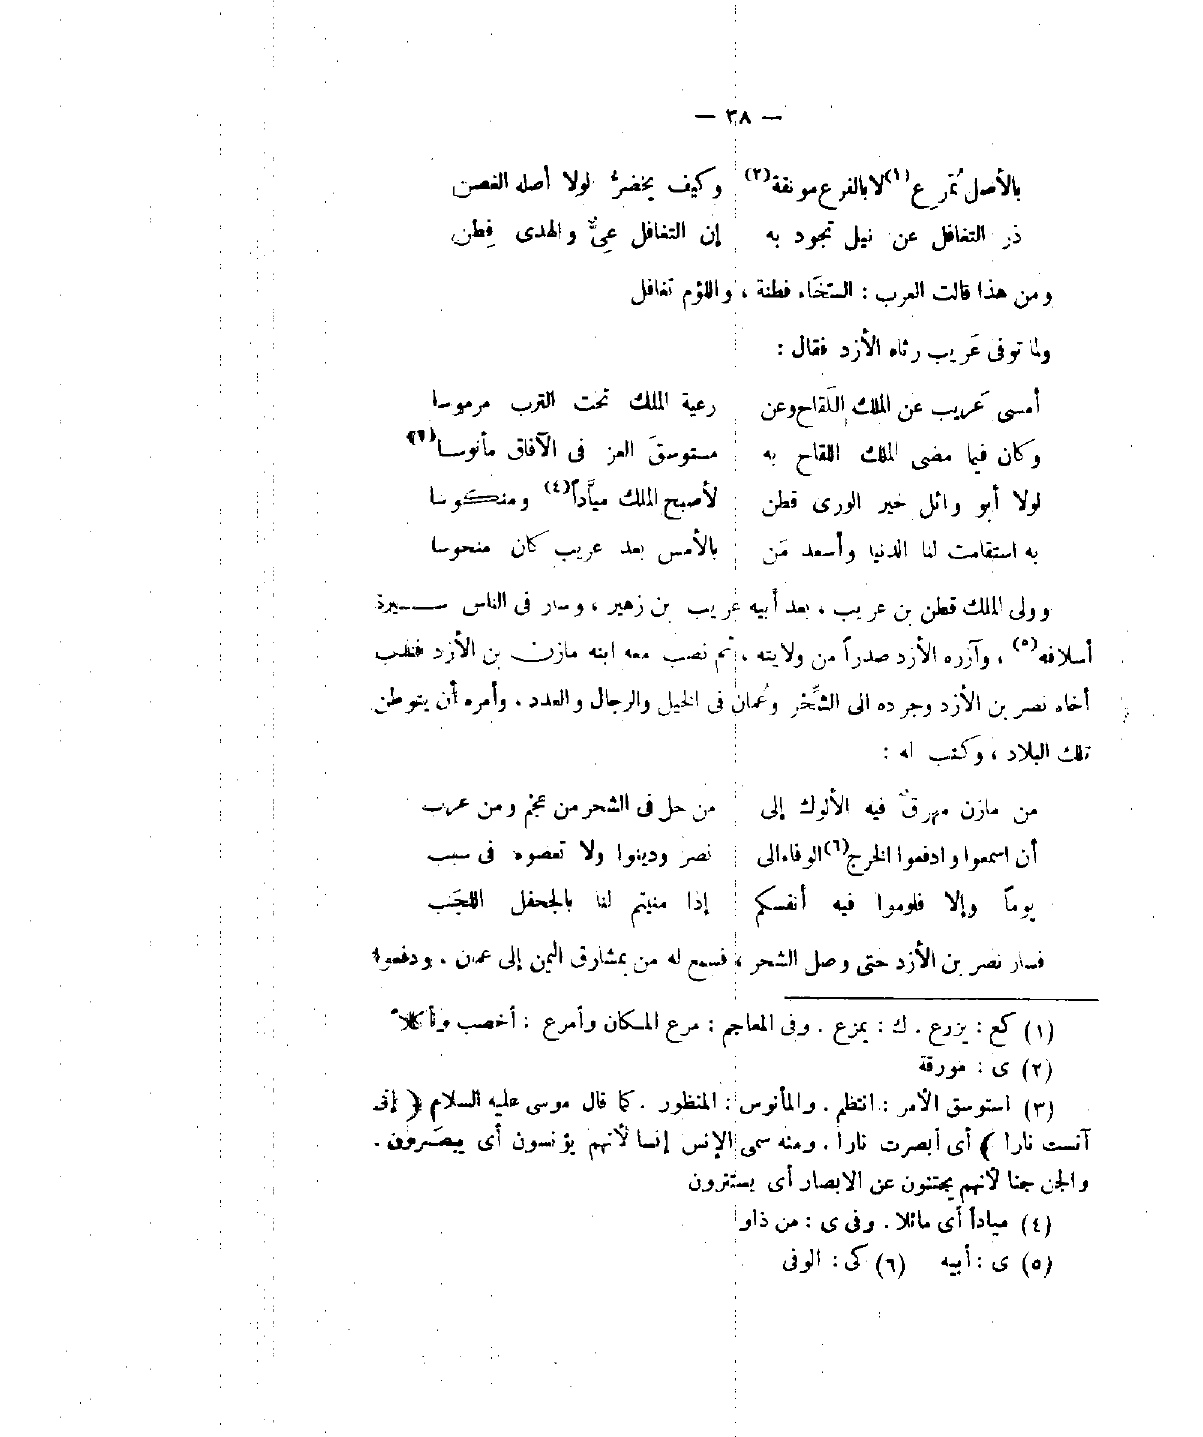 — ٣٨ —
بالأصل تُمرِع (١) لا بالفرع مونقة (٢) وكيف يخضرُّ لولا أصله الغصن
ذر التغافل عن نيل تجود به إن التغافل عِىٌّ والهدى فِطن
ومن هذا قالت العرب : السَّخَاء فطنة ، واللؤم تغافل
ولما توفى عَريب رثاه الأزد فقال :
أمسى عَريب عن الملك اللَقاح وعن رعية الملك تحت الترب مرموسا
وكان فيما مضى الملك اللقاح به مستوسقَ العز فى الآفاق مأنوسا (٣)
لولا أبو وائل خير الورى قطن لأصبح الملك ميَّاداً (٤) ومنكوسا
به استقامت لنا الدنيا وأسعد مَن بالأمس بعد عريب كان منحوسا
وولى الملك قطن بن عريب ، بعد أبيه عريب بن زهير ، وسار فى الناس ســـيرة
أسلافه (٥) ، وآزره الأزد صدراً من ولايته ، ثم نصب معه ابنه مازن بن الأزد فندب
أخاه نصر بن الأزد وجرده الى الشِّحْر وعُمان فى الخيل والرجال والعدد . وأمره أن يتوطن
تلك البلاد ، وكتب له :
من مازن مهرقٌ فيه الألوك إلى من حل فى الشحر من عجْم ومن عرب
أن اسمعوا وادفعوا الخرج (٦) الوفاء الى نصر ودينوا ولا تعصوه فى سبب
يوماً وإلا فلوموا فيه أنفسكم إذا منيتم لنا بالجحفل اللجَب
فسار نصر بن الأزد حتى وصل الشحر ، فسمع له من بمشارق اليمن إلى عمان . ودفعوا
(١) كع : يزرع . ك : يمزع . وفى المعاجم : مرع المكان وأمرع : أخصب وأكلأ
(٢) ى : مورقة
(٣) استوسق الأمر : انتظم . والمأنوس : المنظور . كما قال موسى عليه السلام ﴿ إنى
آنست نارا ﴾ أى أبصرت نارا . ومنه سمى الإنس إنسا لأنهم يؤنسون أى يبصَرون .
والجن جنا لأنهم يجتنون عن الابصار أى يستترون
(٤) ميادا أى مائلا . وفى ى : من ذاو
(٥) ى : أبيه (٦) كى : الوفى